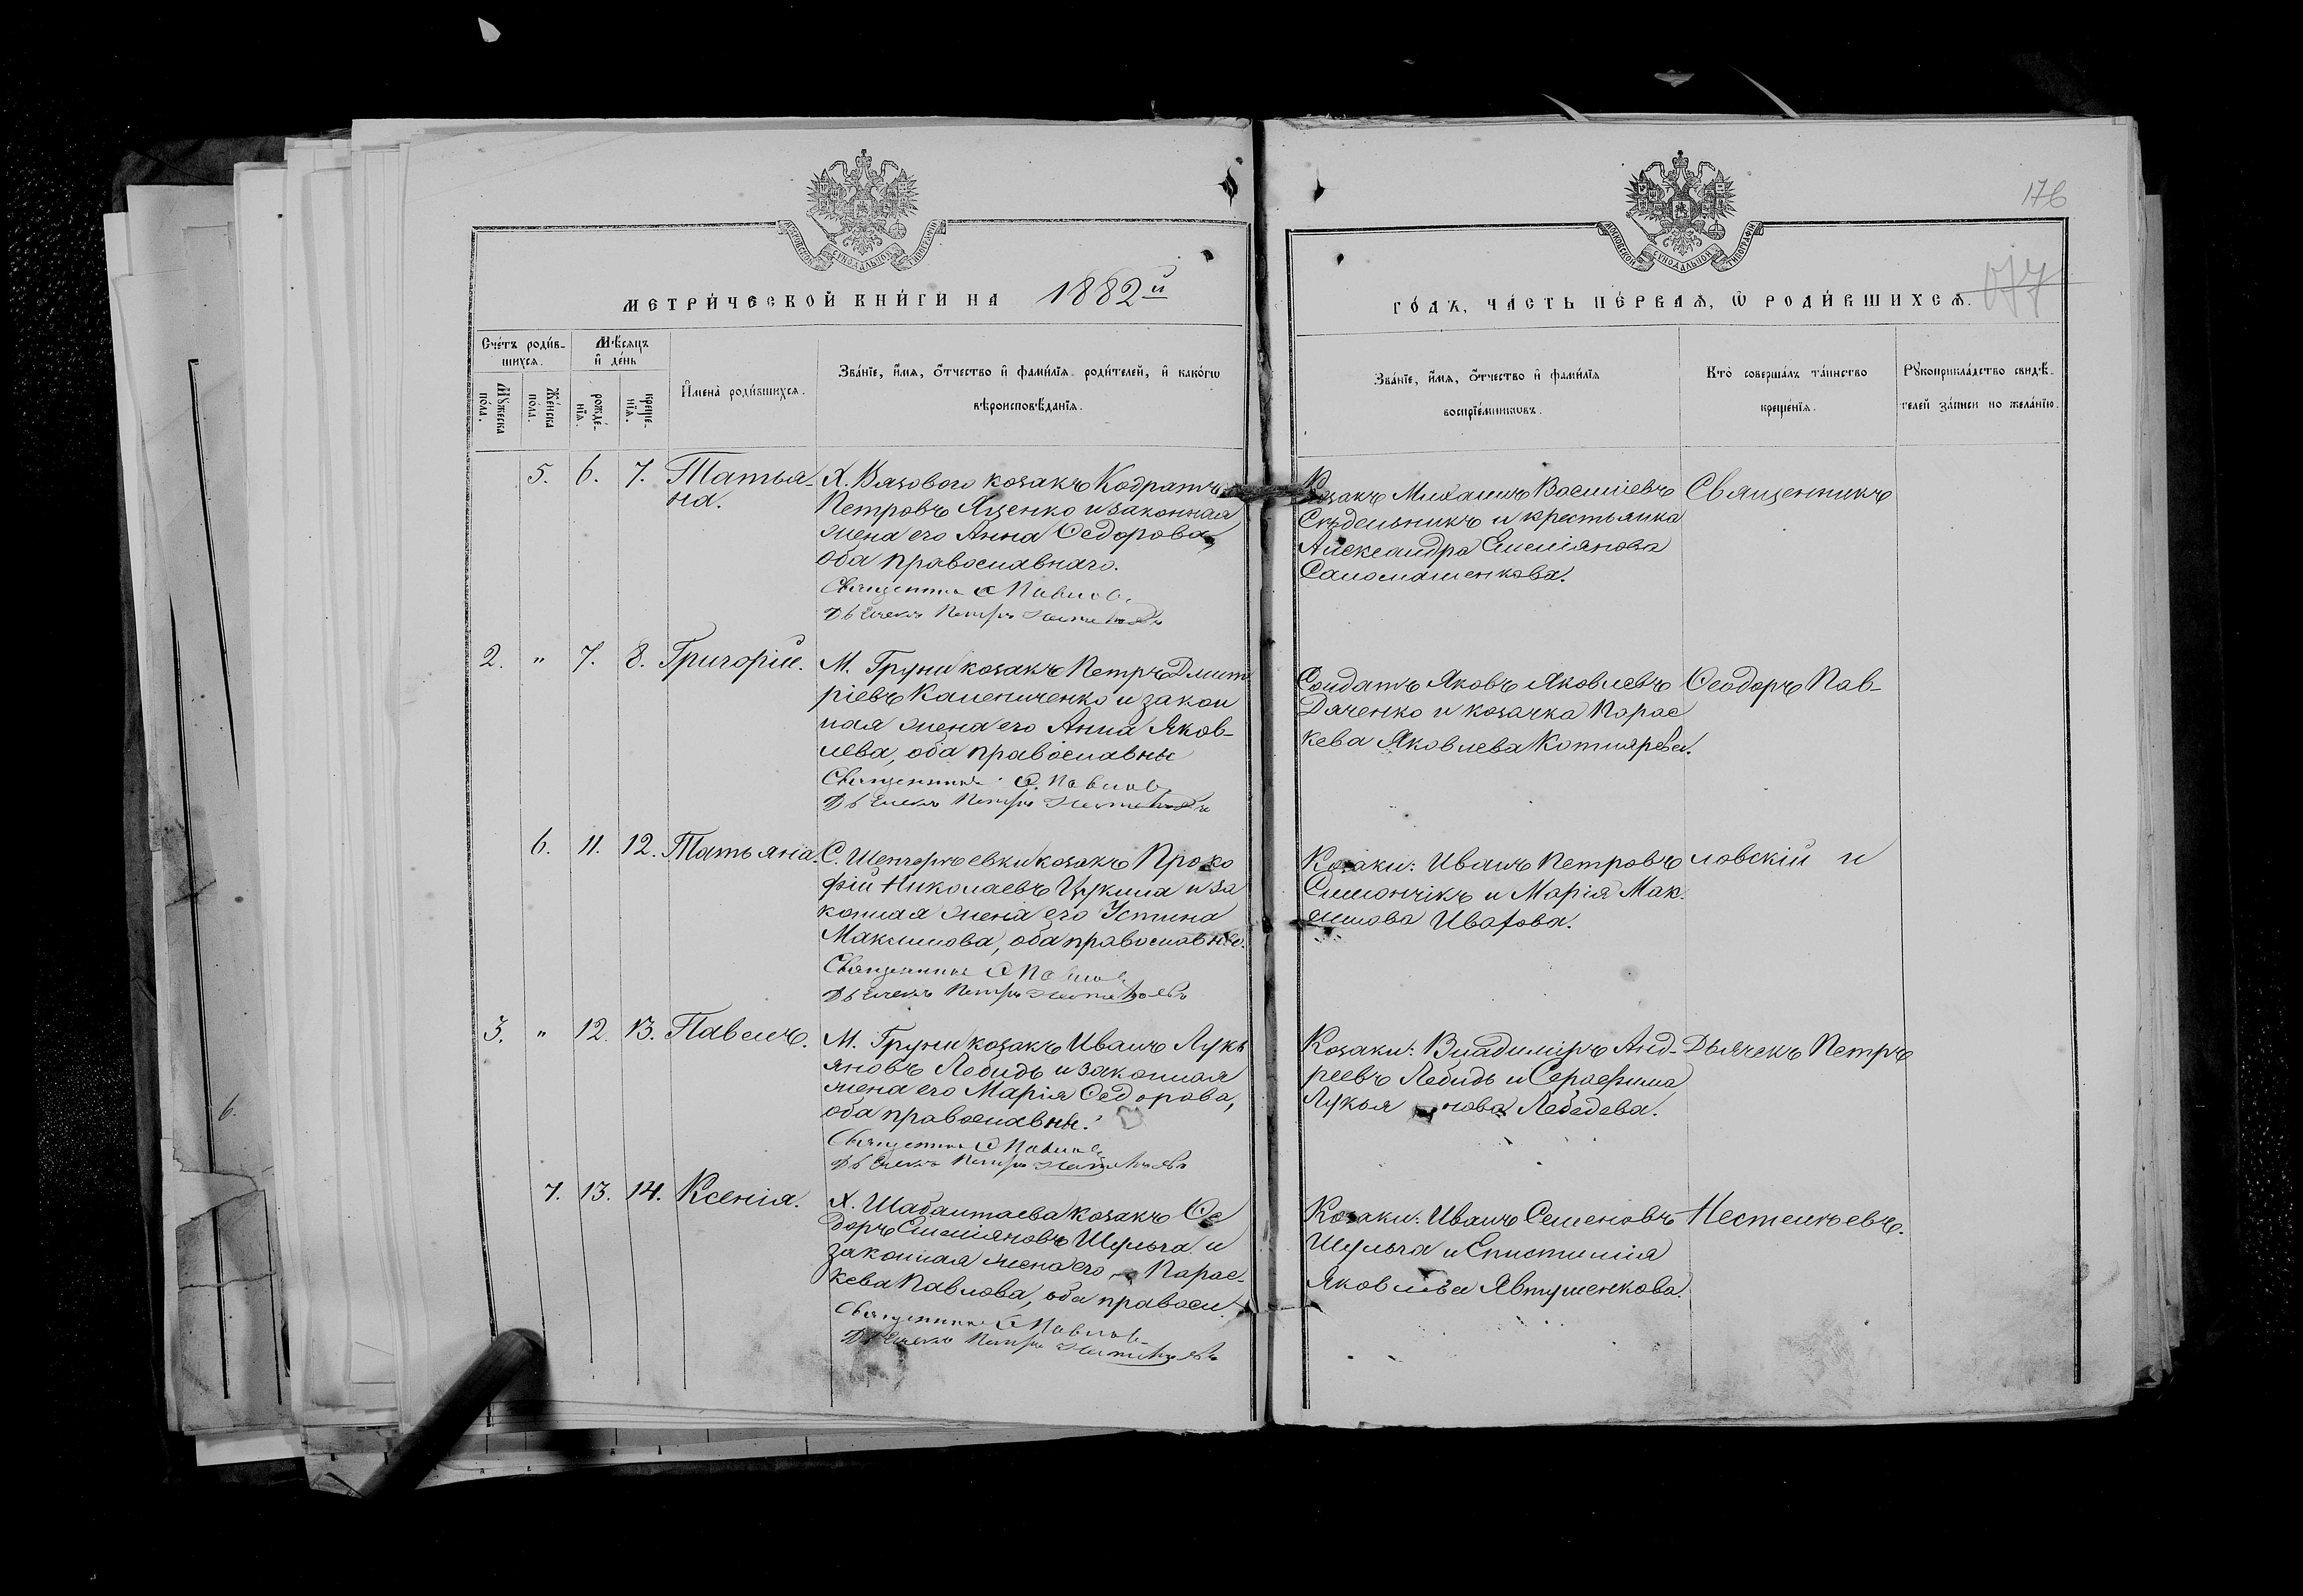 176
077
МОСКОВСКОЙ СУНОДАЛЬНОЙ ТИПОГРАФІИ
МОСКОВСКОЙ СУНОДАЛЬНОЙ ТИПОГРАФІИ
МЕТРИ́ЧЕСКОЙ КНИ́ГИ НА 1882й
ГО́ДЪ, ЧА́СТЬ ПЕ́РВАѦ, Ѡ РОДИ́ВШИХСѦ.
Сче́тъ роди́в-
шихсѧ.
Мѣ́сяцъ
и҆ де́нь
Мꙋ́жеска
по́ла.
Же́нска
по́ла.
рожде́-
нїѧ.
креще́-
нїѧ.
И҆мена̀ роди́вшихсѧ.
Зва́нїе, и҆́мѧ, ѻ҆́тчество и҆ фамѝлїѧ роди́телей, и҆ како́гѡ
вѣроисповѣ́данїѧ.
Зва́нїе, и҆́мѧ, ѻ҆́тчество и҆ фамѝлїѧ
воспрїе́мникѡвъ.
Кто̀ соверша́лъ та́инство
креще́нїѧ.
Рꙋкоприкла́дство свидѣ́-
телей за́писи по жела́нїю.
5. 6. 7. Татья-
на.
Х. Вязового козакъ Кодратъ
Петровъ Яценко и законная
жена его Анна Ѳедорова,
оба православнаго.
Священникъ Ѳ Павлов.
Дьячекъ Петръ
Козакъ Михаилъ Василіевъ
и крестьянка
Александра Емеліянова
Священникъ
2. " 7. 8. Григорій.
М. Груни козакъ Петръ Дмит
ріевъ Калениченко и закон
ная жена его Анна Яков-
лева, оба православны
Священникъ Ѳ. Павлов.
Дьячекъ Петръ
Солдатъ Яковъ Яковлевъ
Дяченко и козачка Парас
кева Яковлева Котлярева.
Ѳеодоръ Пав-
6. 11. 12. Татьяна.
С. козакъ Проко
фій Николаевъ и за
конная жена его Устина
Максимова, оба православнаго.
Священникъ Ѳ Павлов.
Дьячекъ Петръ Нестельевъ
Козаки: Иванъ Петровъ
Симончікъ и Марія Мак-
симова
ловскій и
3. " 12. 13. Павелъ.
М. Груни козакъ Иванъ Лукь
яновъ Лебидь и законная
жена его Марія Ѳедорова,
оба православны.
Священникъ Ѳ Павлов.
Дьячекъ Петръ Нестельевъ
Козаки: Владиміръ Анд-
реевъ Лебидь и Серафима
Лукья нова Лебедева.
Дьячекъ Петръ
7. 13. 14. Ксенія.
Х. Шабалтаева козакъ Ѳе
доръ Емеліяновъ Шульга и
законная жена его Парас-
кева Павлова, оба правосл.
Священникъ Ѳ Павлов.
Дьячекъ Петръ Нестельевъ
Козаки: Иванъ Семеновъ
Шульга и Епистимія
Яковлева Явтушенкова.
Нестельевъ.
6.